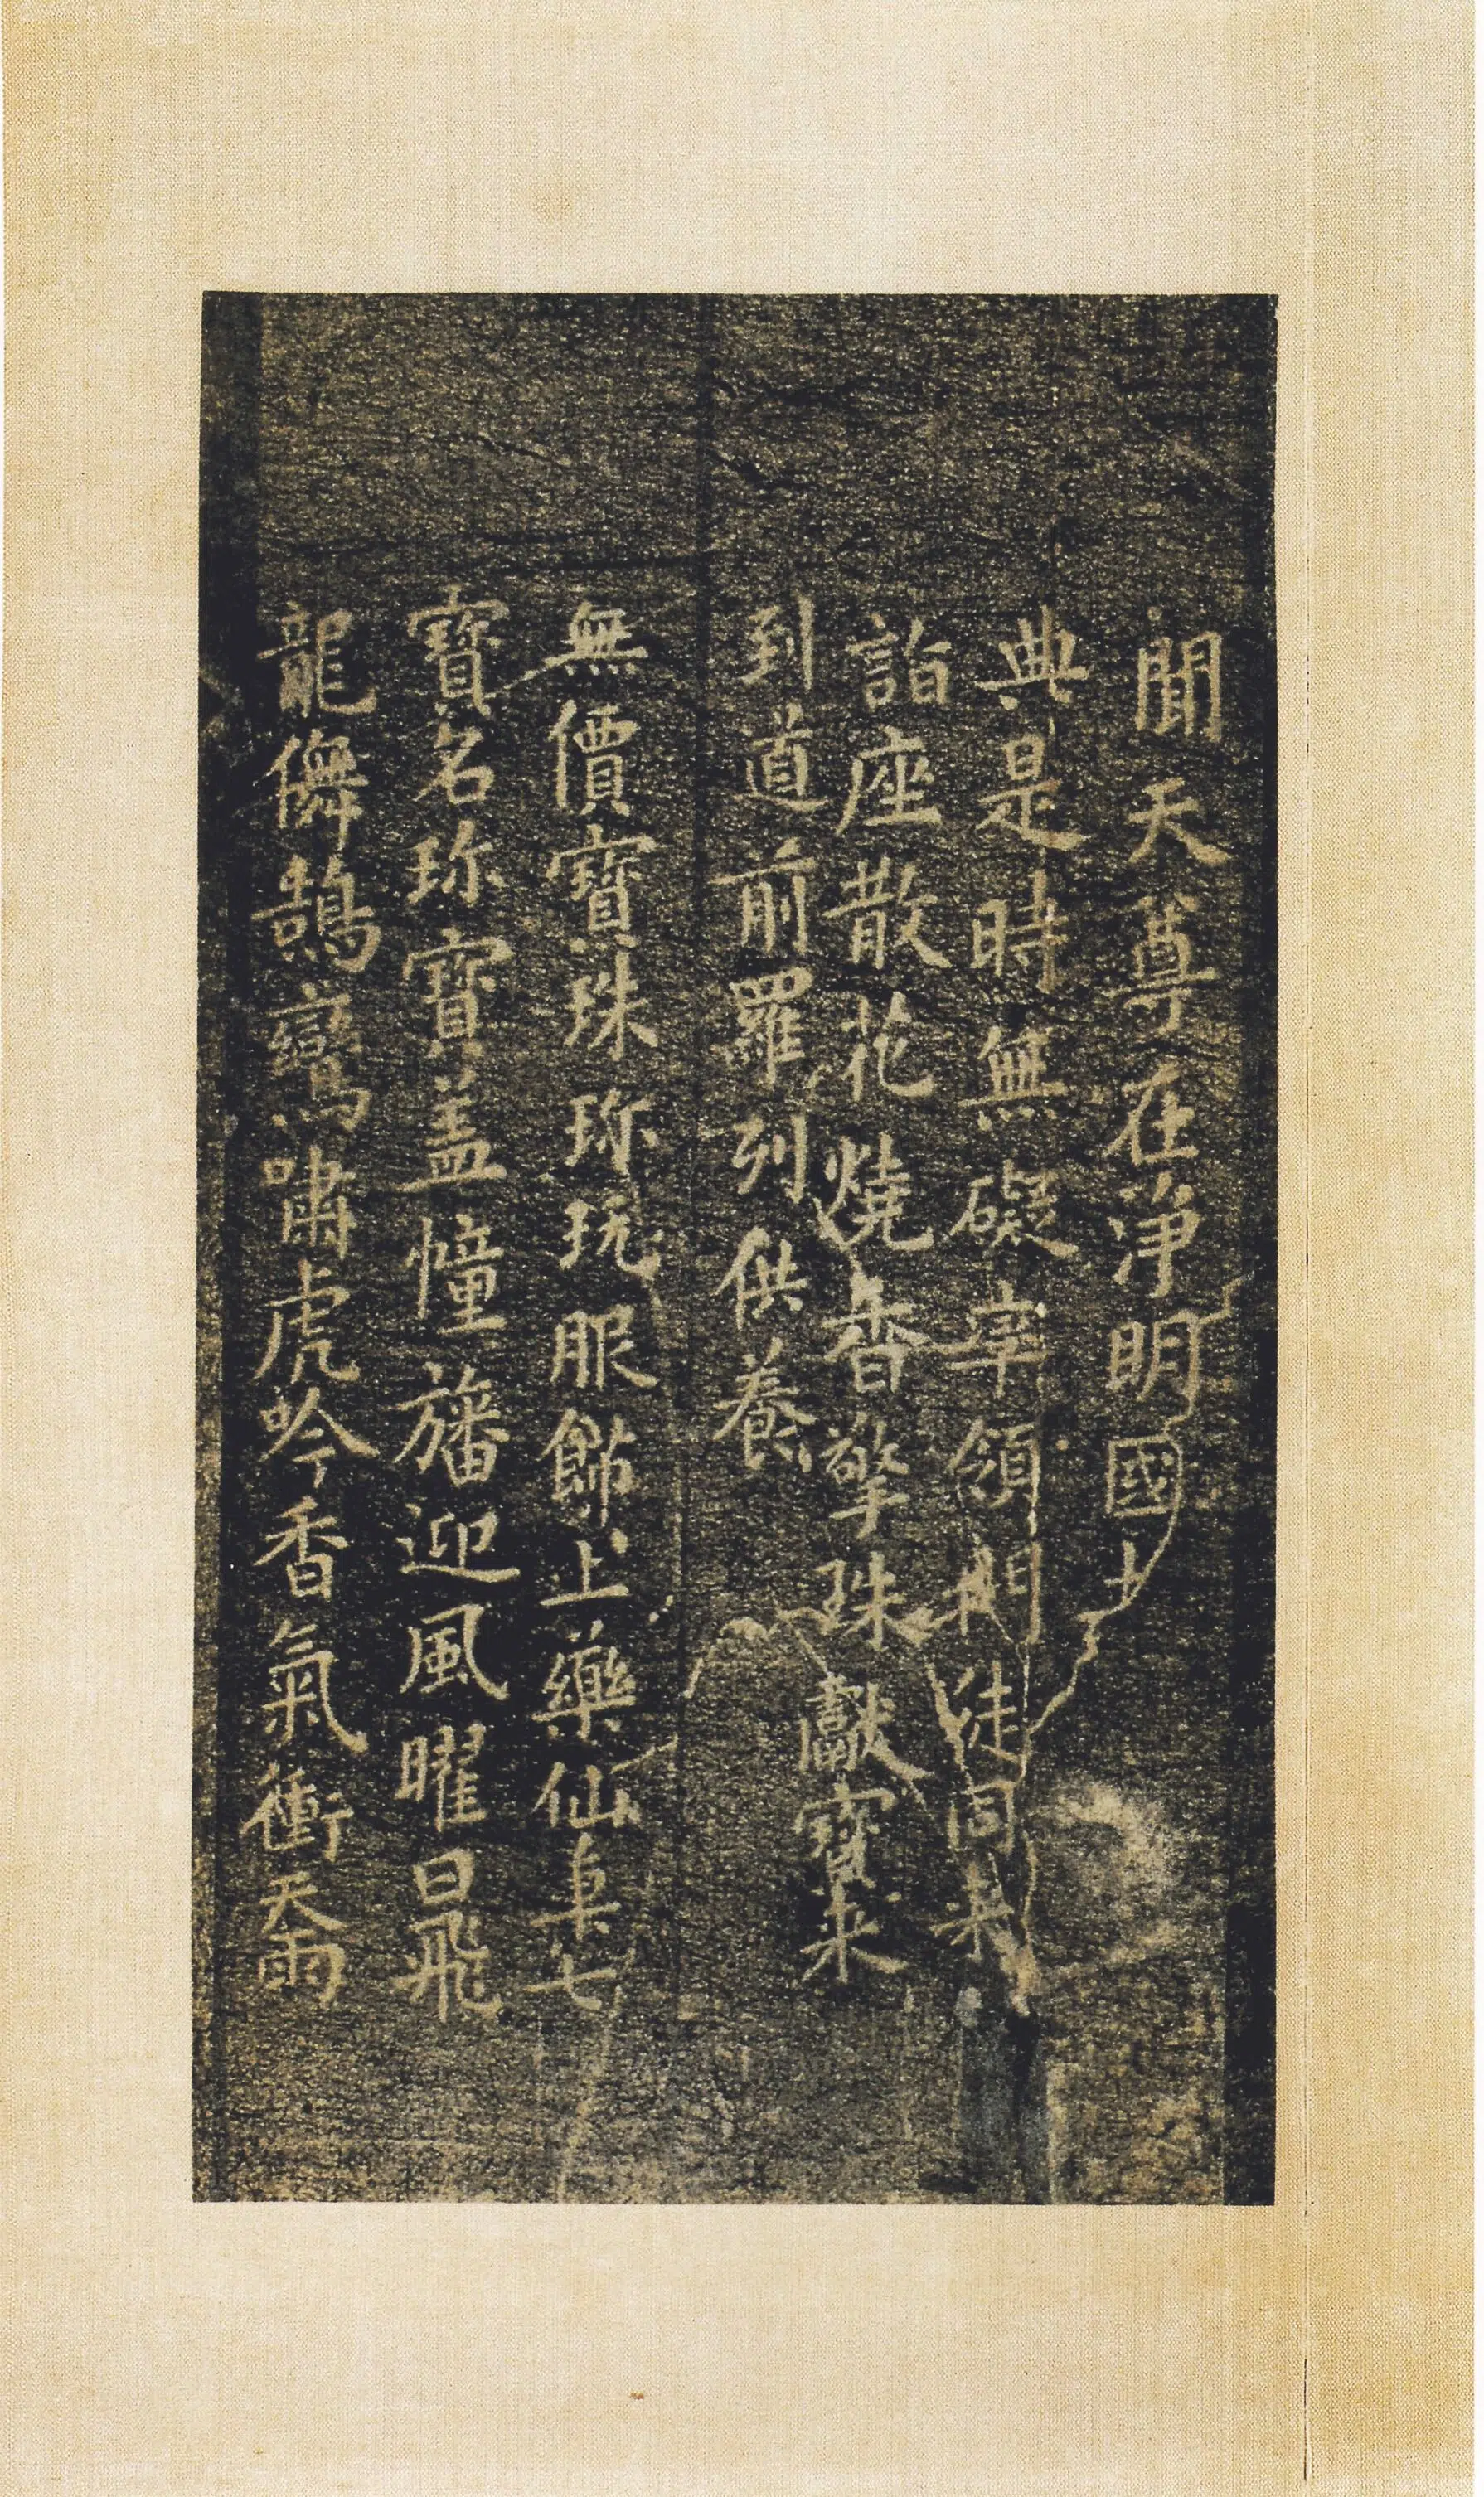 聞天尊在淨明國土
典是時無礙率領門徒同来
詣座散花燒香擎珠獻寶来
到道前羅列供養
無價寶珠珎玩服飾上藥仙草七
寶名珎寶盖幢旛迎風曜日飛
龍儛鵠鸞嘯虎吟香氣衝天雨